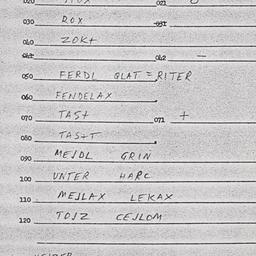 020 021
030 ROX 031
040 ZOK+
041 042 —
050 FERDL GLAT = RITER
060 FENDELAX
070 TAS+ 071 +
080 TAS+T
090 MEJDL GRIN
100 UNTER HARC
110 MEJLAX LEKAX
120 TOJZ CEJLOM